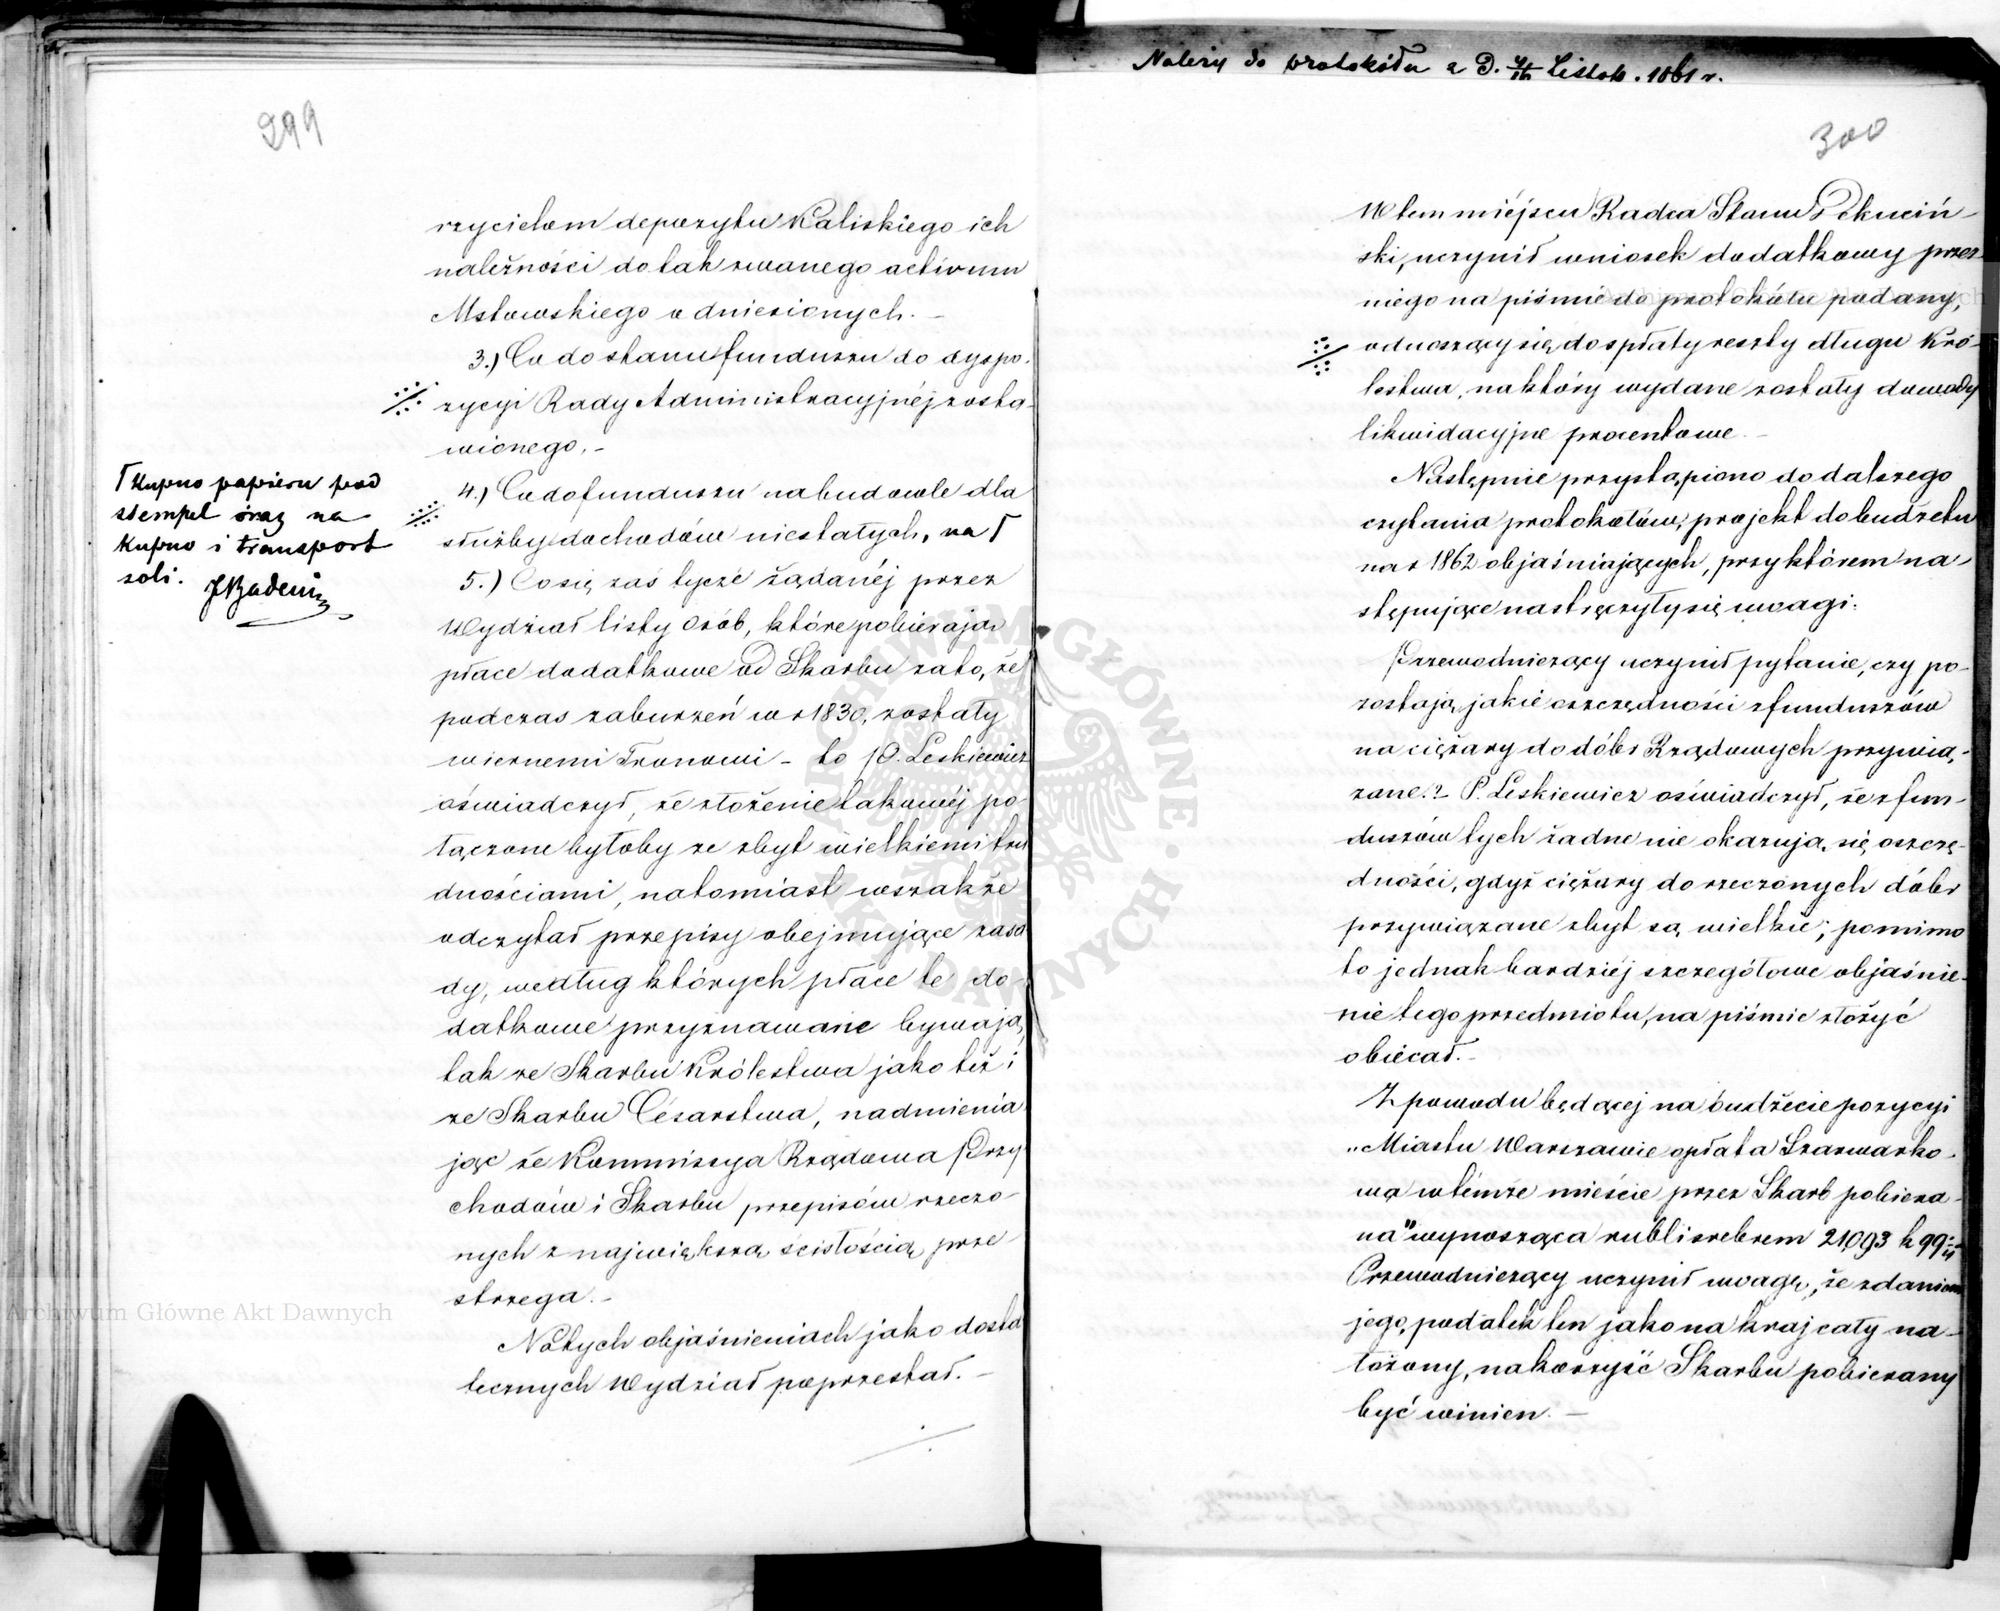 299
rzycielom depozytu Kaliskiego ich
należności do tak zwanego activum
Mstowskiego odniesionych. –
3.) Co do stanu funduszu do dyspo-
zycyi Rady Administracyjnéj zosta-
wionego. –
4.) Co do funduszu na budowle dla
służby dochodów niestałych, na Γ
Γ Kupno papieru pod
stempel oraz na
Kupno i transport
soli. JBadeni
5.) Co się zaś tycze żądanéj przez
Wydział listy osób, które pobierają
płace dodatkowe od Skarbu zato, że
podczas zaburzeń w r 1830, zostały
wiernemi Tronowi – to P. Leskiewicz
oświadczył, że złożenie takowéj po-
łączone byłoby ze zbyt wielkiemi tru
dnościami, natomiast wszakże
odczytał przepisy obejmujące zasa
dy, według których płace te do-
datkowe przyznawane bywają,
tak ze Skarbu Królestwa jako też i
ze Skarbu Césarstwa, nadmienia
jąc że Kommissya Rządowa Przy
chodów i Skarbu przepisów rzeczo-
nych z największą ścisłością prze-
strzega. –
Na tych objaśnieniach jako dosta
tecznych Wydział poprzestał. –
Należy do protokółu z D. 4/16 Listop. 1861 r.
300
W tem miéjscu Radca Stanu Dekuciń-
ski, uczynił wniosek dodatkowy przez
niego na piśmie do protokółu podany,
odnoszący się do spłaty reszty długu Kró-
lestwa, na który wydane zostały dowody
likwidacyjne procentowe. –
Następnie przystąpiono do dalszego
czytania protokołów, projekt do budżetu
na r 1862 objaśniających, przy którem na-
stępujące nastręczyły się uwagi:
Przewodniczący uczynił pytanie, czy po-
zostają jakie oszczędności z funduszów
na ciężary do dóbr Rządowych przywią-
zane? – P. Leskiewicz oświadczył, że z fun-
duszów tych żadne nie okazują się oszczę-
dności, gdyż ciężary do rzeczonych dóbr
przywiązane zbyt są wielkie; pomimo
to jednak bardziéj szczegółowe objaśnie-
nie tego przedmiotu, na piśmie złożyć
obiécał. –
Z powodu będącej na budżecie pozycyi
„Miastu Warszawie opłata Szarwarko-
wa w témże mieście przez Skarb pobiera-
na" wynosząca rubli srebrem 21,093 k 99
Przewodniczący uczynił uwagę, że zdaniem
jego, podatek ten jako na kraj cały na-
łożony, na korzyść Skarbu pobierany
być winien. –
ARCHIWUM GŁÓWNE AKT DAWNYCH
Archiwum Główne Akt Dawnych
Archiwum Główne Akt Dawnych